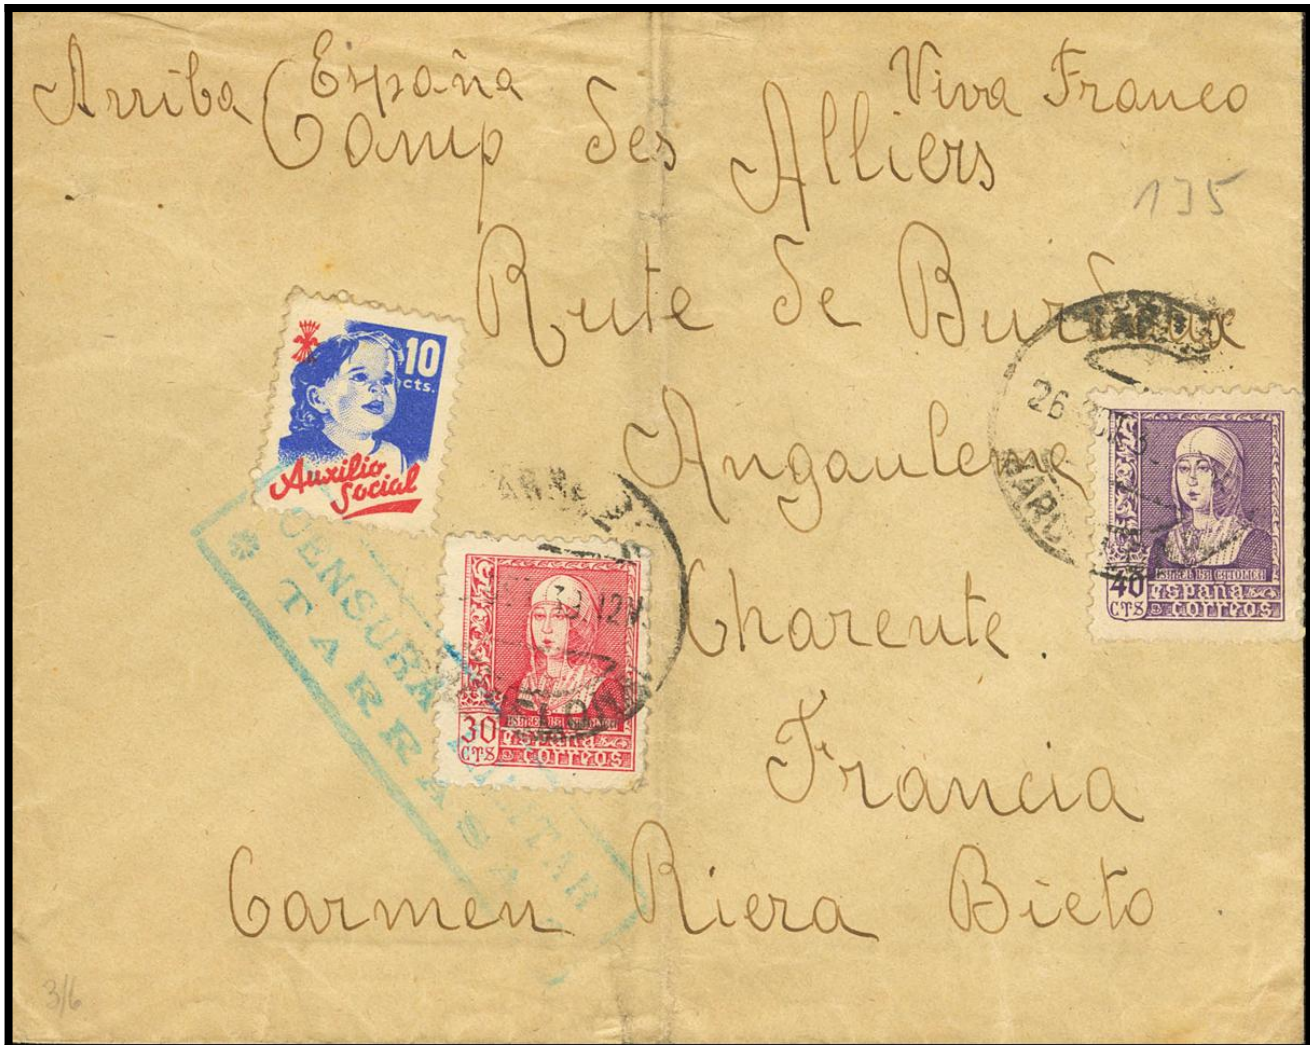 Arriba España Viva Franco
Camp des Alliers
135
Rute de Burdeux
Angauleme
Charente.
Francia
Carmen Riera Bieto
10
cts.
Auxilio
Social
CENSURA MILITAR
TARRASA
30
CTS
ISABEL LA CATOLICA
España
correos
39.12M.
26
40
CTS
ISABEL LA CATOLICA
España
correos
3/6